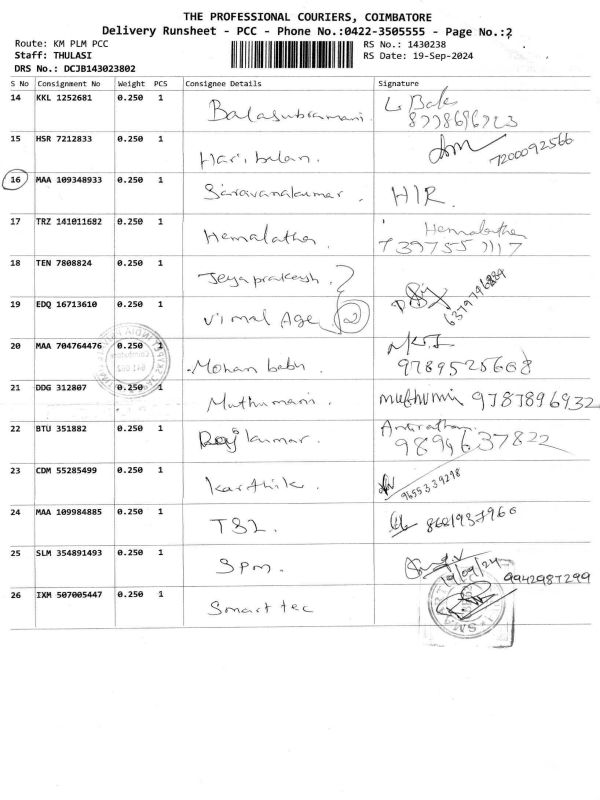 THE PROFESSIONAL COURIERS, COIMBATORE
Delivery Runsheet - PCC - Phone No.:0422-3505555 - Page No.:2
Route: KM PLM PCC
RS No.: 1430238
Staff: THULASI
RS Date: 19-Sep-2024
DRS No.: DCJB143023802
S No Consignment No Weight PCS Consignee Details Signature
14 KKL 1252681 0.250 1 Balasubramani. L. Bala
8778696723
15 HSR 7212833 0.250 1 Hari balan. 7200092566
16 MAA 109348933 0.250 1 Saravanakumar. HIR.
17 TRZ 141011682 0.250 1 Hemalatha. Hemalatha
7397551117
18 TEN 7808824 0.250 1 Jeya prakash.
6379796884
19 EDQ 16713610 0.250 1 Vimal Age 2
20 MAA 704764476 0.250 1 Mohan babu.
9789525668
21 DDG 312807 0.250 1 Muthumani. muthumani 9787896932
22 BTU 351882 0.250 1 Rajkumar.
9894637822
23 CDM 55285499 0.250 1 Karthik. 9655339298
24 MAA 109984885 0.250 1 TSL.
25 SLM 354891493 0.250 1 SPM.
19/09/24 9942987299
26 IXM 507005447 0.250 1 Smart tec